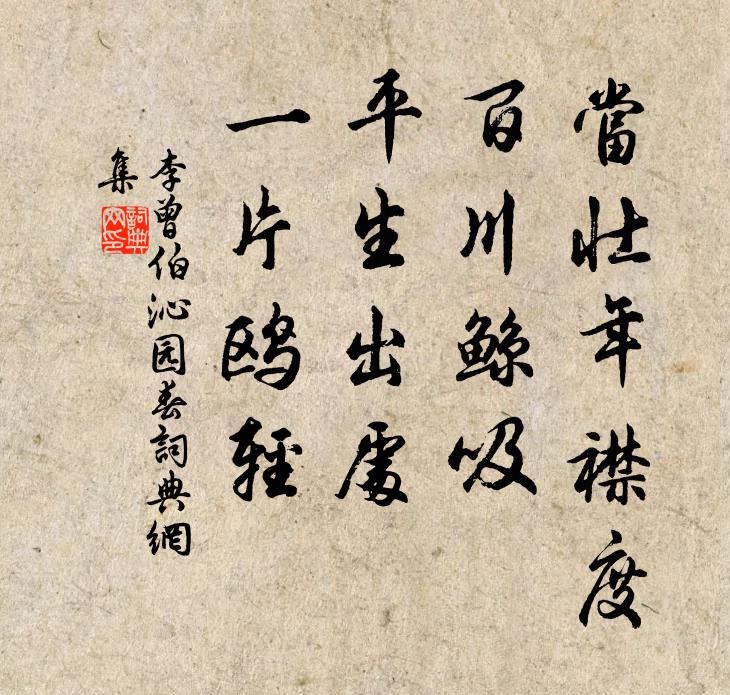 當壯年襟度
百川鲸吸
平生出處
一片鸥輕
李曾伯沁园春詞典網
集
詞典
网印